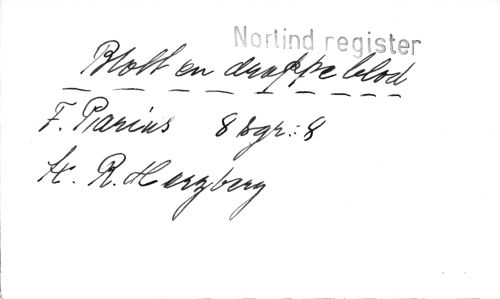 Norlind register
Blott en droppe blod
F. Parius 8 bgr: 8
H. R. Herzberg